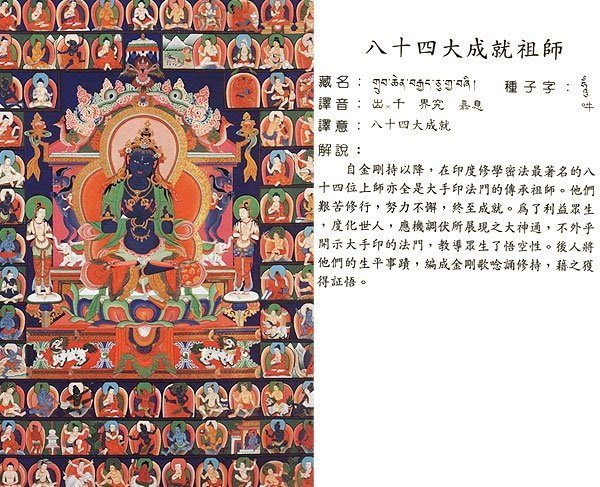 八十四大成就祖師
藏名：གྲུབ་ཆེན་བརྒྱད་ཅུ་རྩ་བཞི། 種子字：
譯音： 千 界究 嘉息 吽
譯意：八十四大成就
解說：
自金剛持以降，在印度修學密法最著名的八
十四位上師亦全是大手印法門的傳承祖師。他們
艱苦修行，努力不懈，終至成就。爲了利益眾生
，度化世人，應機調伏所展現之大神通，不外乎
開示大手印的法門，教導眾生了悟空性。後人將
他們的生平事蹟，編成金剛歌唸誦修持，藉之獲
得証悟。